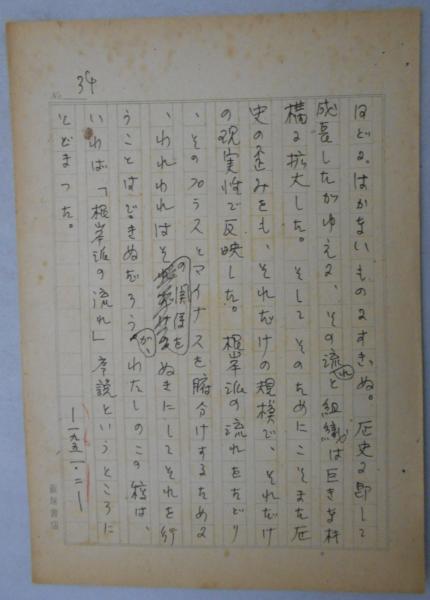 No. 34
ほどる。はかないものにすぎぬ。歴史に即して
成長したがゆえに、その流れと組織は巨きな材
構に拡大した。そしてそのためにこそまた歴
史の歪みをも、それだけの規模で、それだけ
の現実性で反映した。根岸派の流れをたどり
、そのプラスとマイナスを腑分けするために
、われわれはその関係をぬきにしてそれを行
うことはできぬだろうが、わたしのこの稿は、
いわば「根岸派の流れ」序説というところに
とどまった。
―一九五一・二―